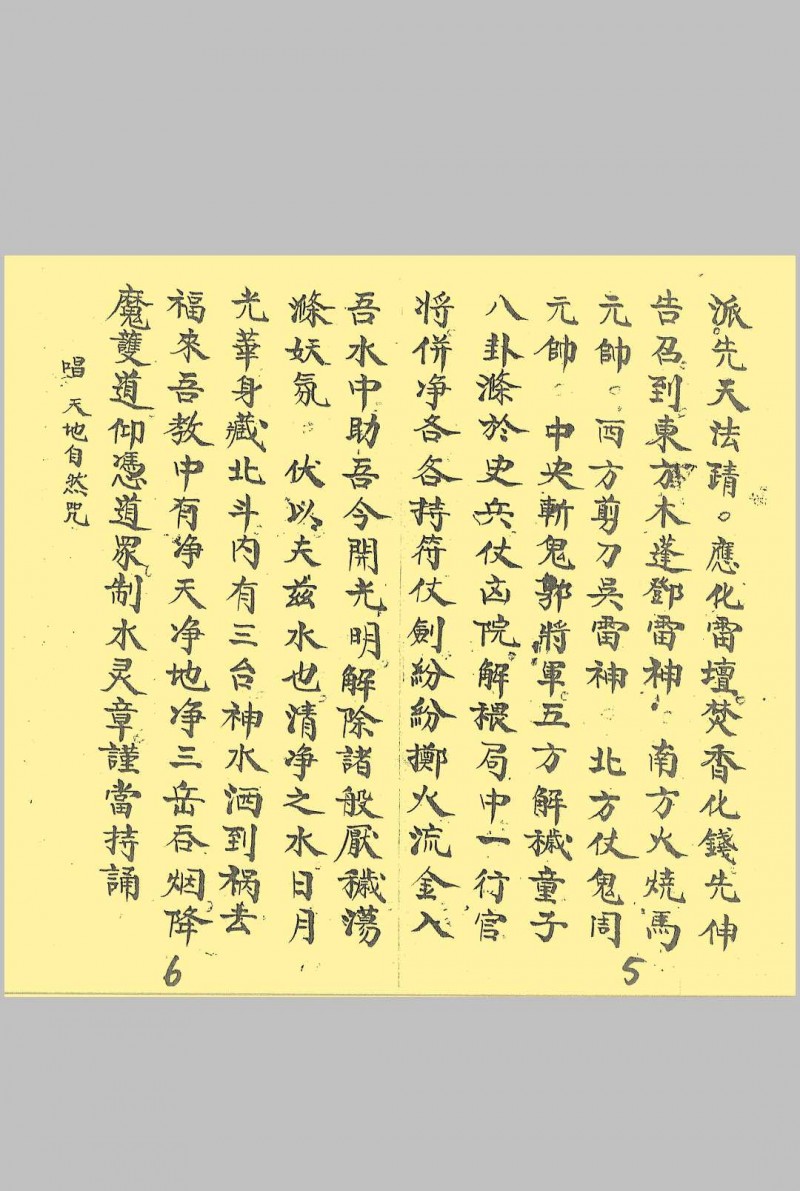 派先天法蹟。應化雷壇焚香化錢先伸
告召到東方木蓬鄧雷神。南方火燒馬
元帥。西方剪刀吳雷神。北方仗鬼周
元帥。中央斬鬼鄧將軍五方解穢童子
八卦滌於史兵仗凶院解穢局中一行官
将併净各各持符仗劍紛紛擲火流金入
5
吾水中助吾今開光明解除諸般厭穢蕩
滌妖氛 伏以夫兹水也清净之水日月
光華身藏北斗内有三台神水洒到祸去
福來吾教中有净天净地净三岳吞烟降
魔雙道仰憑道眾制水灵章謹當持誦
唱 天地自然咒
6